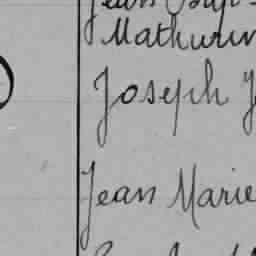 Mathurin
Joseph J
Jean Marie